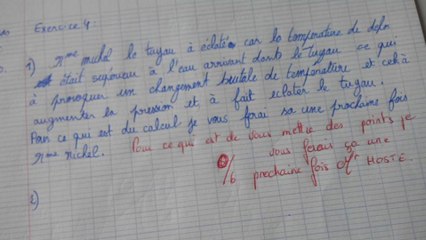 Exercice 4
1) Mme Michel le tuyau à éclatée car la temperature de dehr
était superieur à l'eau arrivant dans le tuyau ce qui
à provoquer un changement brutale de température et cel à
augmenter la pression et à fait eclater le tuyau.
Pour ce qui est du calcul je vous ferai sa une prochaine fois
Mme Michel. Pour ce qui est de vous mettre des points je
vous ferais ça une
0/6 prochaine fois Mr HOSTE.
2)